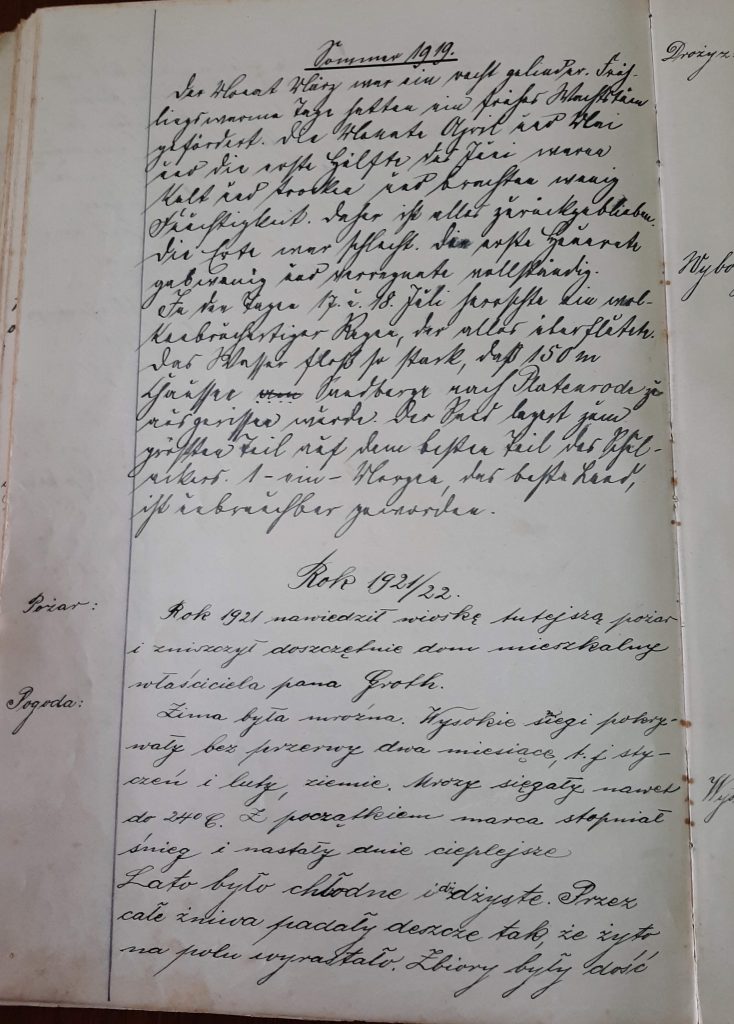 Sommer 1919.
Der Monat März war ein recht gelinder. Früh-
lingswarme Tage hatten ein frühes Wachstum
gefördert. Die Monate April und Mai
und die erste Hälfte des Juni waren
kalt und trocken und brachten wenig
Feuchtigkeit. Daher ist alles zurückgeblieben.
Die Erte war schlecht. Die erste Heuerete
gab wenig und verregnete vollständig.
In den Tagen 17. u. 18. Juli herrschte ein wol-
kenbruchartiger Regen, der alles überflutete.
Das Wasser floß so stark, daß 150 m
Chaussee Sandberge nach Platenrode zu
ausgerissen wurde. Der Sand lagert zum
größten Teil auf dem besten Teil des Schul-
ackers. 1 - ein - Morgen, das beste Land,
ist unbrauchbar geworden.
Rok 1921/22.
Pożar:
Rok 1921 nawiedził wioskę tutejszą pożar
i zniszczył doszczętnie dom mieszkalny
właściciela pana Groth.
Pogoda:
Zima była mroźna. Wysokie śiegi pokry-
wały bez przerwy dwa miesiące, t. j sty-
czeń i luty, ziemie. Mrozy sięgały nawet
do 24° C. Z początkiem marca stopniał
śnieg i nastały dnie cieplejsze
Lato było chłodne i dżdżyste. Przez
całe żniwa padały deszcze tak, że żyto
na polu wyrastało. Zbiory były dość
Drożyz
Wybo
Wy